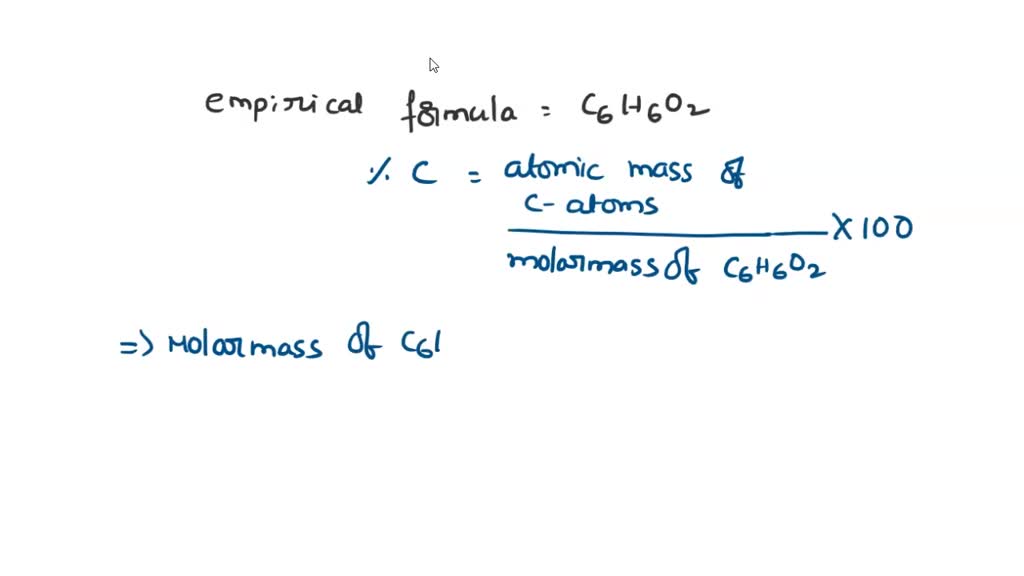 empirical formula = C6H6O2
% C = atomic mass of
C- atoms
X 100
molarmass of C6H6O2
=> Molarmass of C6